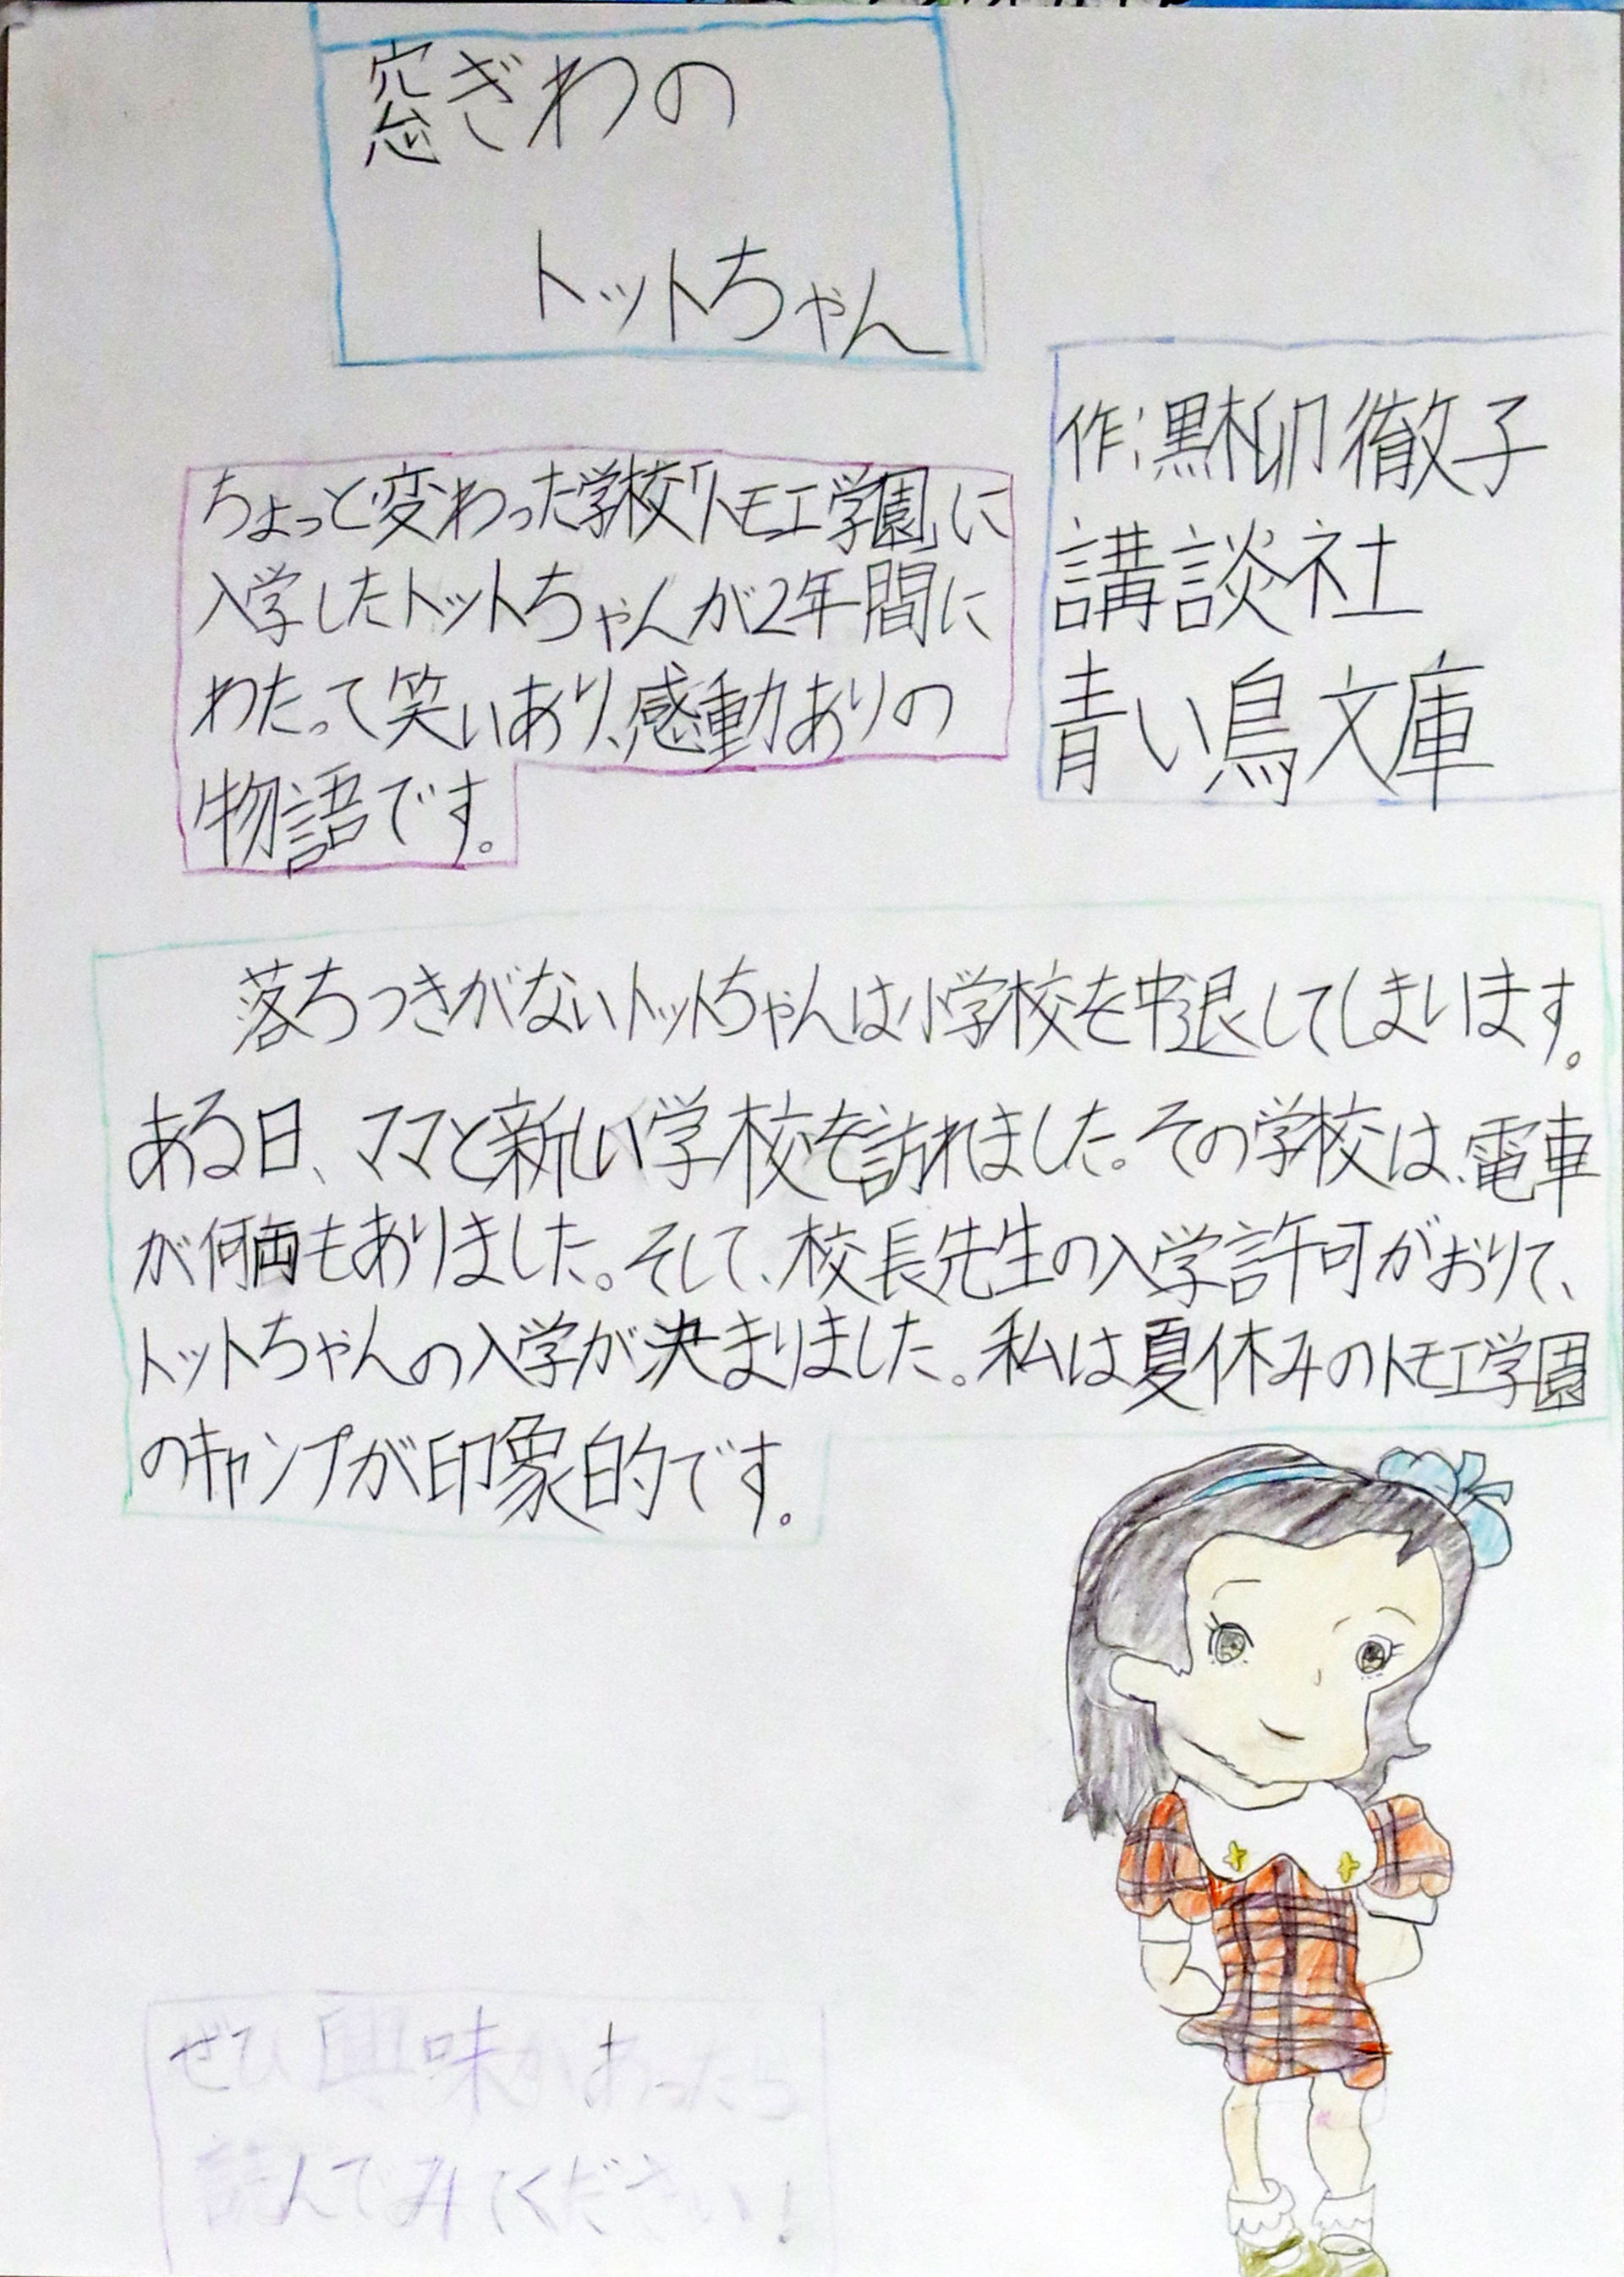 窓ぎわの
トットちゃん
作:黒柳徹子
講談社
青い鳥文庫
ちょっと変わった学校「トモエ学園」に
入学したトットちゃんが2年間に
わたって笑いあり、感動ありの
物語です。
落ちつきがないトットちゃんは小学校を中退してしまいます。
ある日、ママと新しい学校を訪れました。その学校は、電車
が何両もありました。そして、校長先生の入学許可がおりて、
トットちゃんの入学が決まりました。私は夏休みのトモエ学園
のキャンプが印象的です。
ぜひ興味があったら
読んでみてください!